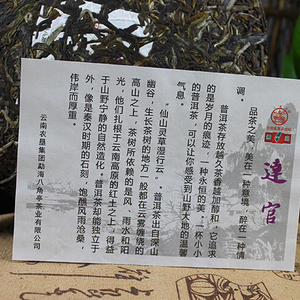 達官
品茶之美，美在一种意境，醉在一种情
调。
普洱茶存放越久茶香越加醇和，它追求
的是岁月的痕迹，一种永恒的美，一杯小小
的普洱茶，可以让你感受到山野大地的温馨
气息。
“仙山灵草湿行云”，普洱茶出自深山
幽谷，生长茶树的地方一般都在云雾缠绕的
高山之上，茶树所依赖的是风、雨水和阳
光，他们扎根于云南高原的红土之上，得益
于山野宁静的自然造化。普洱茶却能独立于
外，像是秦汉时期的石刻，饱酿风雨沧桑，
伟岸而厚重。
云南农垦集团勐海八角亭茶业有限公司